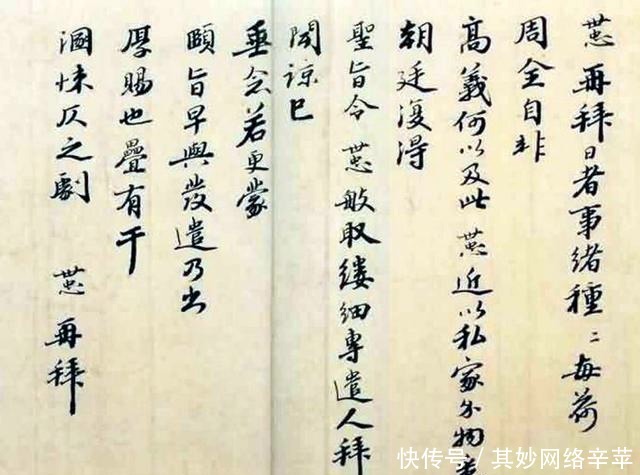 再拜日者事緒種二每荷
周全自非
高義何以及此 近以私家分物
朝廷復得
聖旨令 敏取縷細專遣人拜
聞諒已
垂念若更蒙
頤旨早與發遣乃出
厚賜也疊有干
溷悚仄之劇 再拜
快传号/其妙网络辛苹